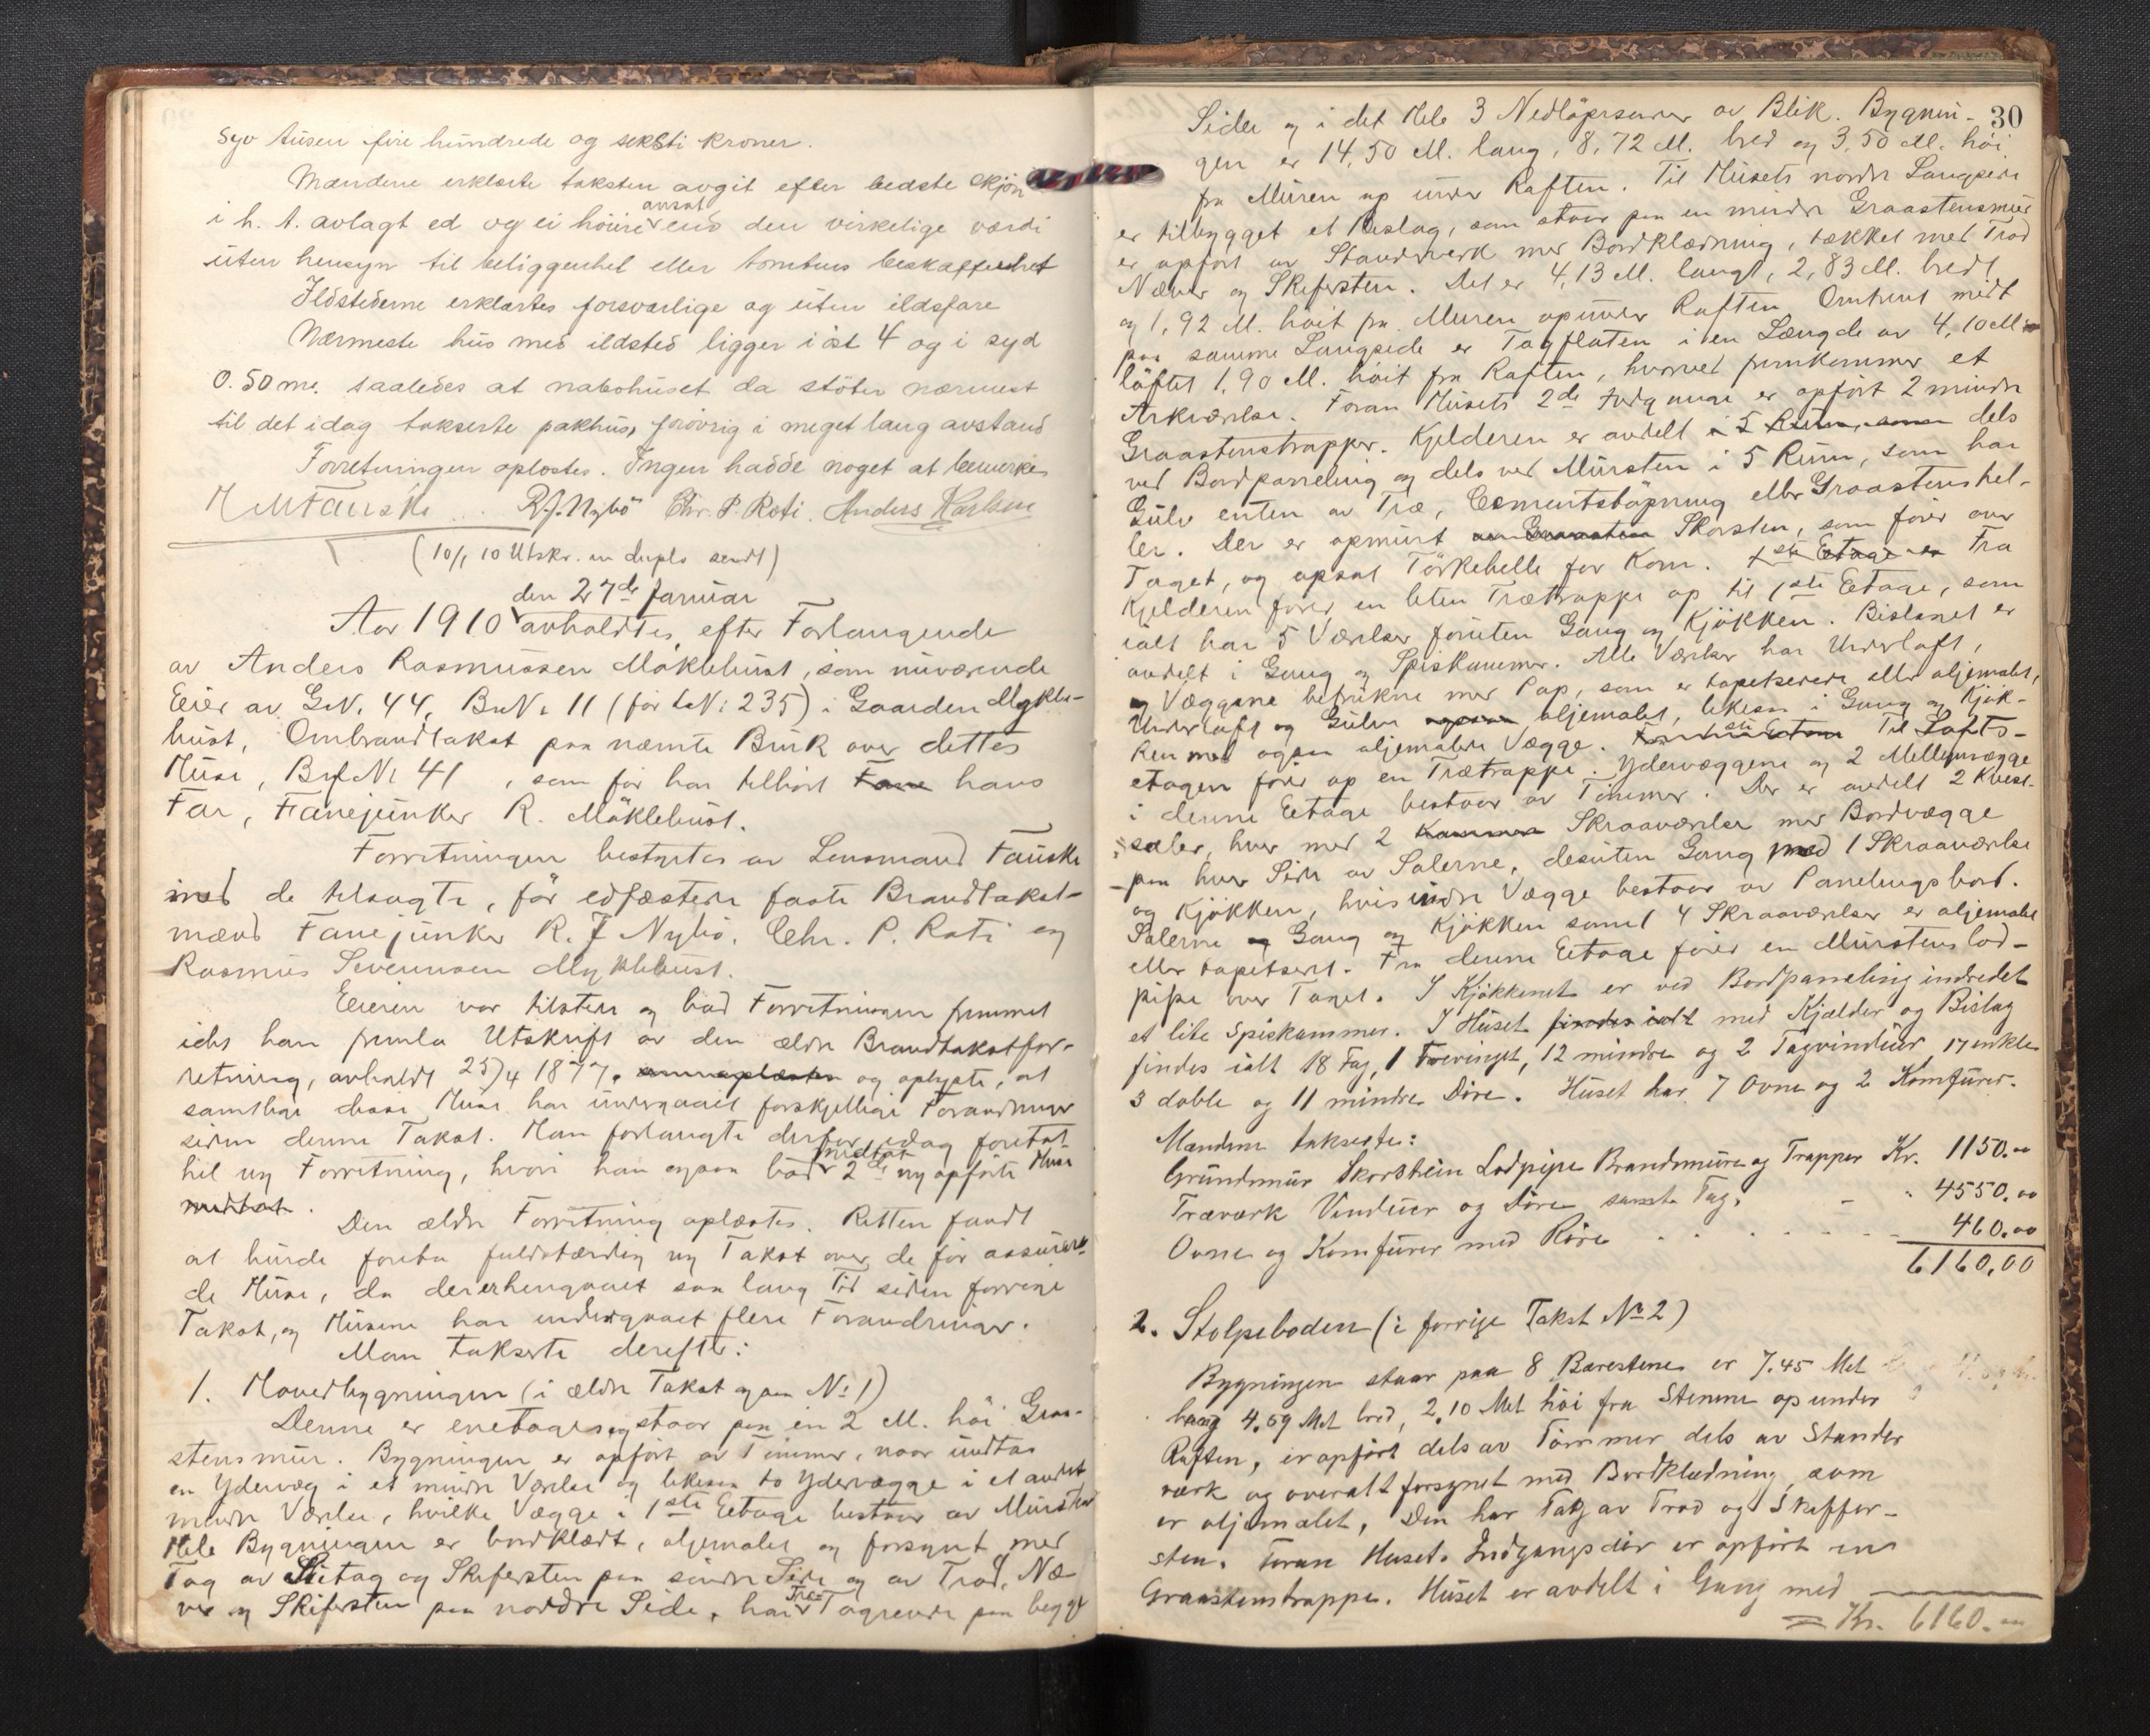 syv tusen fire hundrede og seksti kroner.
Mændene erklærte taksten avgit efter bedste skjøn
i h. t. avlagt ed og ei høiere ansat end den virkelige værdi
uten hensyn til beliggenhet eller tomtens beskaffenhet
Ildstederne erklærtes forsvarlige og uten ildsfare
Nærmeste hus med ildsted ligger i øst 4 og i syd
0.50 m. saaledes at nabohuset da støter nærmest
til det idag takserte pakhus, forøvrig i meget lang avstand
Forretningen oplæstes. Ingen hadde noget at bemerke
H M Fauske R. J. Nybö Chr. P. Roti. Anders Karlsen
(10/1 10 Utskr. in duplo sendt)
den 27de Januar
Aar 1910 avholdtes efter Forlangende
av Anders Rasmussen Möklebust, som nuværende
Eier av G.N. 44, B.N. 11 (før L.N. 235) i Gaarden Mykle-
bust, Ombrandtakst paa nævnte Bruk over dettes
Huse, Brf. N. 41, som før har tilhørt Fane hans
Far, Fanejunker R. Möklebust.
Forretningen bestyrtes av Lensmand Fauske
med de tilsagte, før edfæstede faste Brandtakst-
mænd Fanejunker R. J Nybö, Chr. P. Roti og
Rasmus Severinsen Myklebust.
Eieren var tilstede og bad Forretningen fremmet
idet han fremla Utskrift av den ældre Brandtakstfor-
retning, avholdt 25/4 1877, og oplyste, at
samtlige disse Huse har undergaaet forskjellige Forandringer
siden denne Takst. Han forlangte derfor idag foretat
hel ny Forretning, hvori han ogsaa bad medtat 2de ny opførte Huse
medtat.
Den ældre Forretning oplæstes. Retten fandt
at burde foreta fuldstændig ny Takst over de før assurere-
de Huse, da der er hengaaet saa lang Tid siden forrige
Takst, og Husene har undergaaet flere Forandringer.
Man takserte derefter:
1. Hovedbygningen (i ældre Takst ogsaa No 1)
Denne er enetages og staar paa en 2 M. høi Graa-
stensmur. Bygningen er opført av Tømmer, naar undtas
en Ydervæg i et mindre Værelse og likesaa to Ydervægge i et andet
mindre Værelse, hvilke Vægge i 1ste Etage bestaar av Mursten
Hele Bygningen er bordklædt, oljemalet og forsynt med
Tag av Sutag og Skifersten paa søndre Side og av Trod, Næ-
ver og Skifersten paa nordre Side, har Træ- Tagrender paa begge
30
Sider og i det Hele 3 Nedløpsrender av Blik. Bygnin-
gen er 14,50 M. lang, 8,72 M. bred og 3,50 M. høi
fra Muren op under Raften. Til Husets nordre Langside
er tilbygget et Bislag, som staar paa en mindre Graastensmur
er opført av Standverk med Bordklædning, tækket med Trod
Næver og Skifersten. Det er 4,13 M. langt, 2,83 M. bredt
og 1,92 M. høit fra Muren op under Raften Omtrent midt
paa samme Langside er Tagflaten i en Længde av 4,10 M
løftet 1,90 M. høit fra Raften, hvorved fremkommer et
Arkværelse. Foran Husets 2de Indgange er opført 2 mindre
Graastenstrapper. Kjelderen er avdelt i 5 Rum, som dels
ved Bordpaneling og dels ved Mursten i 5 Rum, som har
Gulv enten av Træ, Cementstøpning eller Graastenshel-
ler. Der er opmurt av Graasten Skorsten, som fører over
Taget, og opsat Tørkehelle for Korn. 1ste Etage er Fra
Kjelderen fører en liten Trætrappe op til 1ste Etage, som
ialt har 5 Værelser foruten Gang og Kjøkken. Bislaget er
avdelt i Gang og Spiskammer. Alle Værelser har Underloft,
og Væggene betrukne med Pap, som er tapetserede eller oljemalet,
Underloft og Gulve ogsaa oljemalet, likesaa i Gang og Kjøk-
ken med ogsaa oljemalede Vægge. Til Lofts-
etagen fører op en Trætrappe. Ydervæggene og 2 Mellemvægge
i denne Etage bestaar av Tømmer. Der er avdelt 2 Kvist-
saler, hver med 2 Kammer Skraaværelser med Bordvægge
paa hver Side av Salerne, desuten Gang med 1 Skraaværelse
og Kjøkken, hvis indre Vægge bestaar av Panelingsbord.
Salerne og Gang og Kjøkken samt 4 Skraaværelser er oljemalet
eller tapetsert. Fra denne Etage fører en Murstens lod-
pipe over Taget. I Kjøkkenet er ved Bordpaneling indredet
et lite Spiskammer. I Huset findes ialt med Kjælder og Bislag
findes ialt 18 Fag, 1 Trevinget, 12 mindre og 2 Tagvinduer, 17 enkle
3 doble og 11 mindre Døre. Huset har 7 Ovne og 2 Komfurer.
Mændene takserte:
Grundmur Skorstein Lodpipe Brandmure og Trapper Kr. 1150.00
Træværk Vinduer og Døre samt Tag. - " 4550.00
Ovne og Komfurer med Røre . . . . . 460.00
6160,00
2. Stolpeboden (i forrige Takst No 2)
Bygningen staar paa 8 Bærestene er 7.45 Met
lang 4.59 Met bred, 2.10 Met høi fra Stenene op under
Raften, er opført dels av Tømmer dels av Stander
værk og overalt forsynet med Bordklædning, som
er oljemalet, Den har Tag av Trod og Skiffer-
sten. Foran Husets Indgangsdør er opført en
Graastenstrappe. Huset er avdelt i Gang med
= Kr. 6160.00